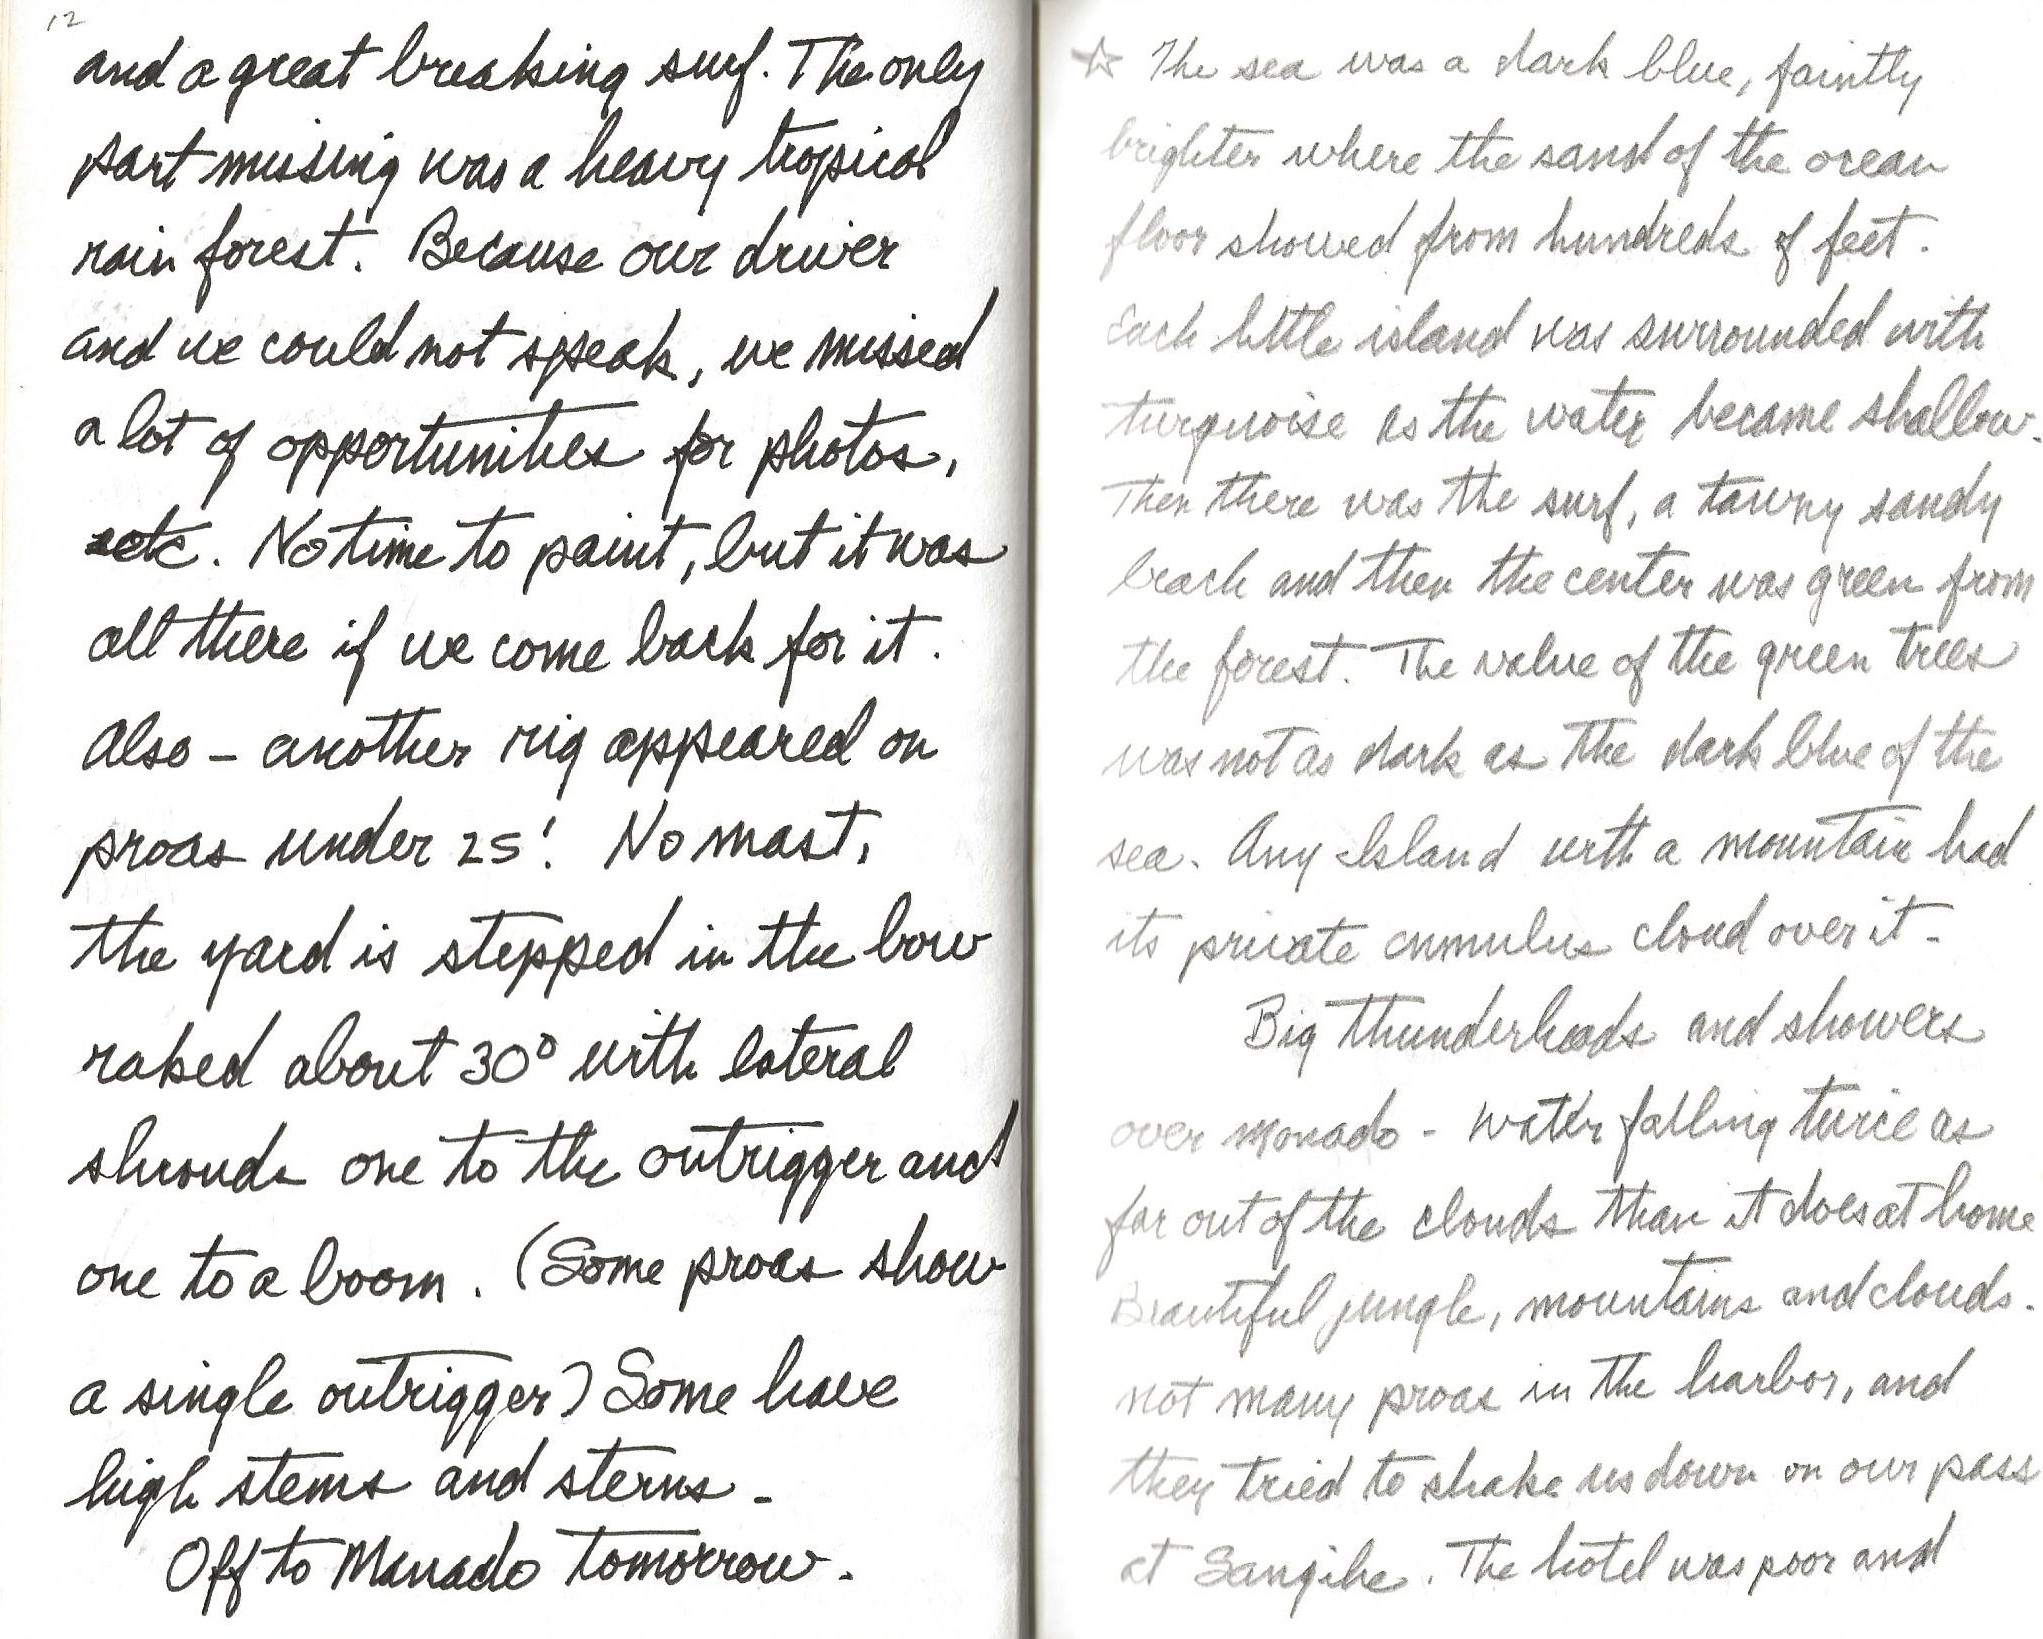 12
and a great breaking surf. The only
part missing was a heavy tropical
rain forest. Because our driver
and we could not speak, we missed
a lot of opportunities for photos,
etc. No time to paint, but it was
all there if we come back for it.
Also - another rig appeared on
proas under 25! No mast,
the yard is stepped in the bow
raked about 30° with lateral
shrouds one to the outrigger and
one to a boom. (Some proas show
a single outrigger) Some have
high stems and sterns -
Off to Manado tomorrow.
☆ The sea was a dark blue, faintly
brighter where the sand of the ocean
floor showed from hundreds of feet.
Each little island was surrounded with
turquoise as the water became shallow.
Then there was the surf, a tawny sandy
beach and then the center was green from
the forest. The value of the green trees
was not as dark as the dark blue of the
sea. Any Island with a mountain had
its private cumulus cloud over it -
Big thunderheads and showers
over Monado - water falling twice as
far out of the clouds than it does at home
Beautiful jungle, mountains and clouds.
not many proas in the harbor, and
they tried to shake us down on our pass
at Sangihe. The hotel was poor and